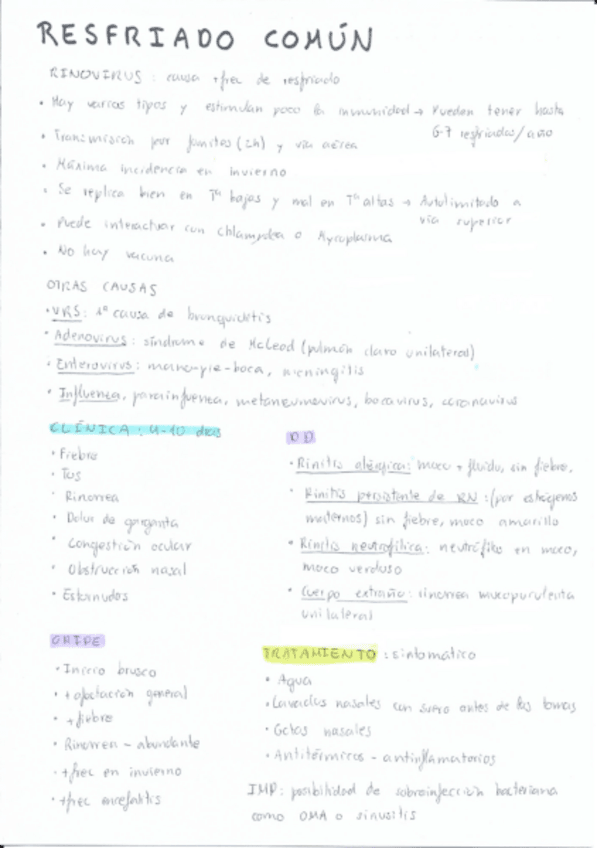 RESFRIADO COMÚN
RINOVIRUS : causa +frec de resfriado
• Hay varios tipos y estimulan poco la inmunidad → Pueden tener hasta
6-7 resfriados/año
• Transmisión por fomites (2h) y vía aérea
• Máxima incidencia en invierno
• Se replica bien en Tª bajas y mal en Tª altas → Autolimitado a
vía superior
• Puede interactuar con Chlamydia o Mycoplasma
• No hay vacuna
OTRAS CAUSAS
• VRS: 1ª causa de bronquiolitis
• Adenovirus: síndrome de McLeod (pulmón claro unilateral)
• Enterovirus: mano-pie-boca, meningitis
• Influenza, parainfluenza, metaneumovirus, bocavirus, coronavirus
CLÍNICA: 4-10 días
• Fiebre
• Tos
• Rinorrea
• Dolor de garganta
• Congestión ocular
• Obstrucción nasal
• Estornudos
DD
• Rinitis alérgica: moco + fluido, sin fiebre.
• Rinitis persistente de RN: (por estrógenos
maternos) sin fiebre, moco amarillo
• Rinitis neutrofílica: neutrófilos en moco,
moco verdoso
• Cuerpo extraño: rinorrea mucopurulenta
unilateral
GRIPE
• Inicio brusco
• + afectación general
• + fiebre
• Rinorrea - abundante
• +frec en invierno
• +frec encefalitis
TRATAMIENTO : sintomático
• Agua
• Lavados nasales con suero antes de las tomas
• Gotas nasales
• Antitérmicos - antiinflamatorios
IMP: posibilidad de sobreinfección bacteriana
como OMA o sinusitis